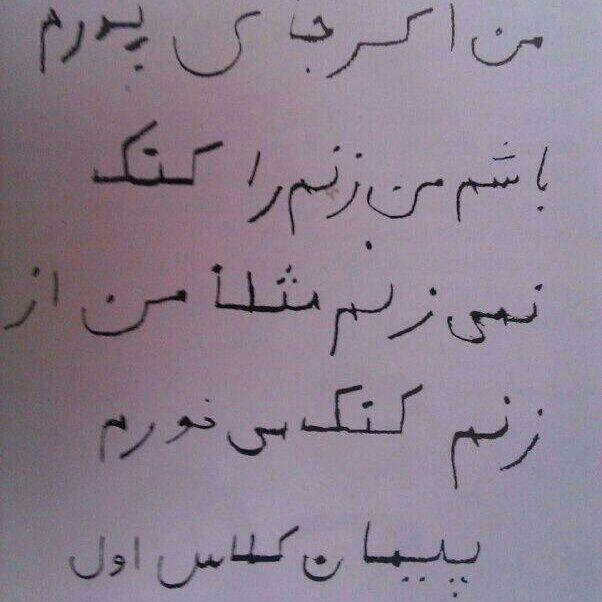 من اگر جای پدرم
باشم من زنم را کتک
نمی زنم مثلا من از
زنم کتک می خورم
پیمان کلاس اول